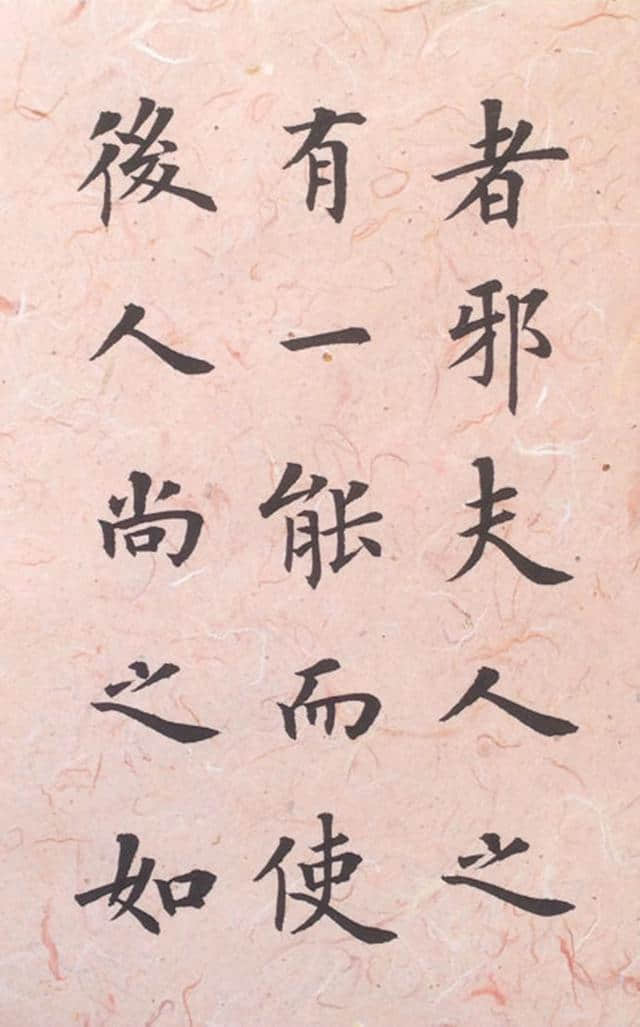 者邪夫人之
有一能而使
後人尚之如